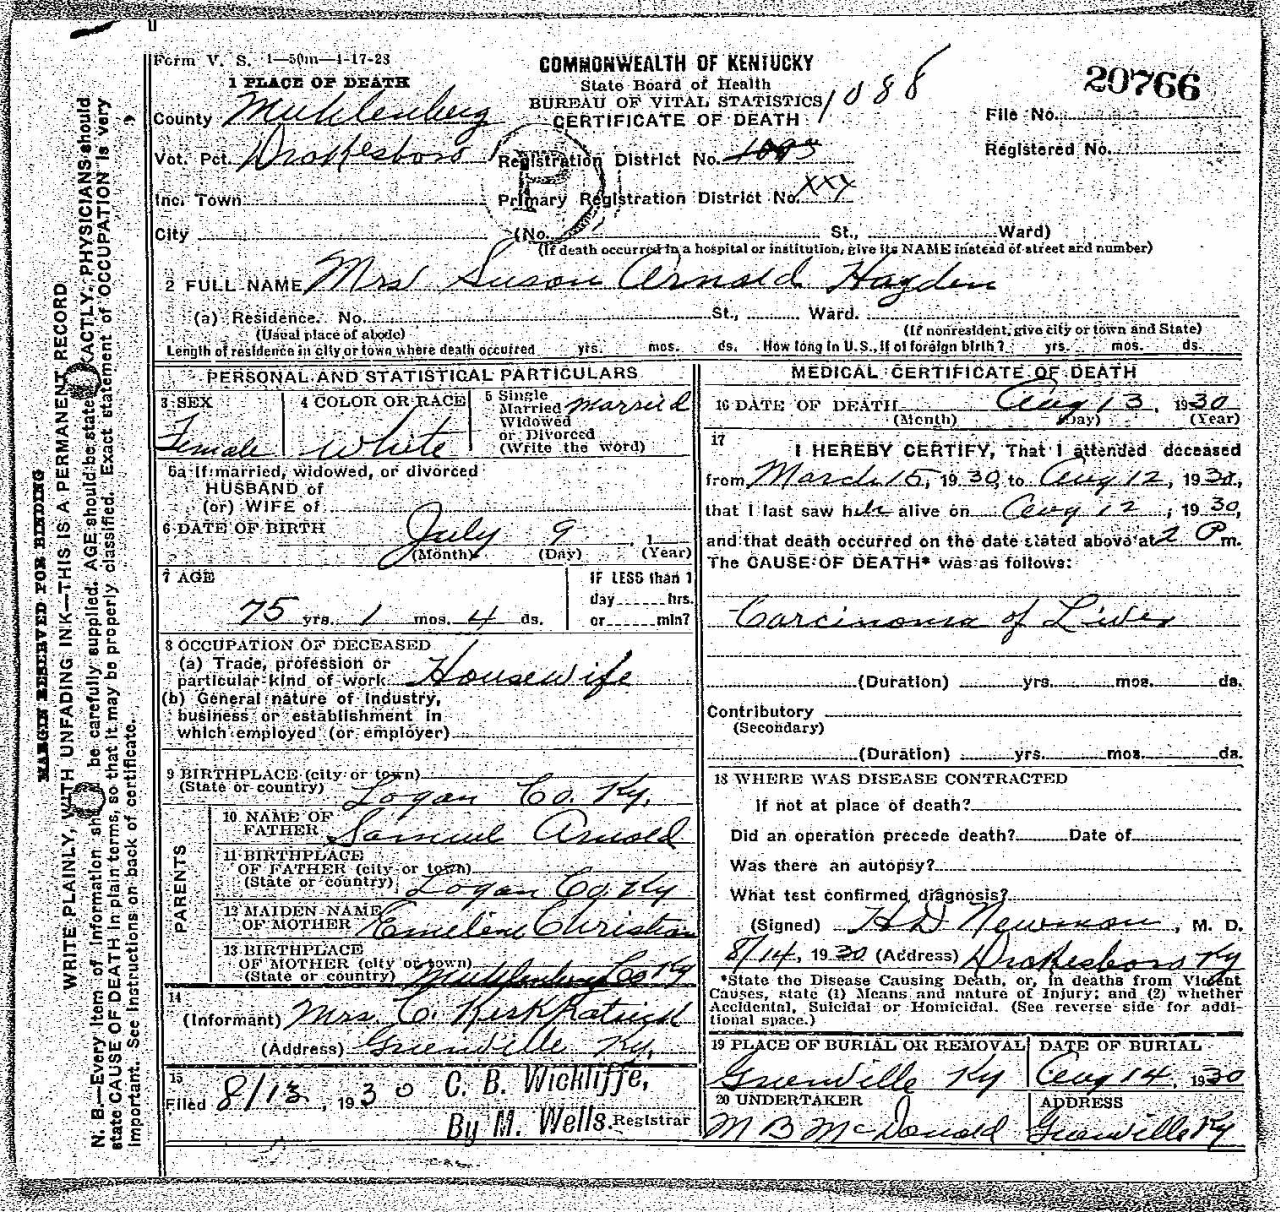 Form V. S. 1—50m—1-17-23
COMMONWEALTH OF KENTUCKY
State Board of Health
BUREAU OF VITAL STATISTICS
CERTIFICATE OF DEATH
1088
20766
File No.
Registered No.
1 PLACE OF DEATH
County Muhlenberg
Vot. Pct. Drakesboro
Registration District No. 1095
Inc. Town
Primary Registration District No. XXY
City
(No. St., Ward)
(If death occurred in a hospital or institution, give its NAME instead of street and number)
2 FULL NAME Mrs Suson Arnold Hayden
(a) Residence. No. St., Ward.
(Usual place of abode)
(If nonresident, give city or town and State)
Length of residence in city or town where death occurred yrs. mos. ds. How long in U.S., if of foreign birth? yrs. mos. ds.
PERSONAL AND STATISTICAL PARTICULARS
3 SEX
Female
4 COLOR OR RACE
White
5 Single
Married
Widowed
or Divorced
(Write the word)
married
5a if married, widowed, or divorced
HUSBAND of
(or) WIFE of
6 DATE OF BIRTH July 9, 1
(Month) (Day) (Year)
7 AGE
75 yrs. 1 mos. 4 ds.
IF LESS than 1
day hrs.
or min?
8 OCCUPATION OF DECEASED
(a) Trade, profession or
particular kind of work Housewife
(b) General nature of Industry,
business or establishment in
which employed (or employer)
9 BIRTHPLACE (city or town)
(State or country) Logan Co. Ky.
PARENTS
10 NAME OF
FATHER Samuel Arnold
11 BIRTHPLACE
OF FATHER (city or town)
(State or country) Logan Co. Ky
12 MAIDEN NAME
OF MOTHER Emeline Christian
13 BIRTHPLACE
OF MOTHER (city or town)
(State or country) Muhlenberg Co Ky
14
(Informant) Mrs. C. Kirkpatrick
(Address) Greenville Ky.
15
Filed 8/13, 1930 C. B. Wickliffe,
By M. Wells. Registrar
MEDICAL CERTIFICATE OF DEATH
16 DATE OF DEATH Aug 13, 1930
(Month) (Day) (Year)
17
I HEREBY CERTIFY, That I attended deceased
from March 15, 1930, to Aug 12, 1930,
that I last saw her alive on Aug 12, 1930,
and that death occurred on the date stated above at 2 P m.
The CAUSE OF DEATH* was as follows:
Carcinoma of Liver
(Duration) yrs. mos. ds.
Contributory
(Secondary)
(Duration) yrs. mos. ds.
18 WHERE WAS DISEASE CONTRACTED
If not at place of death?
Did an operation precede death? Date of
Was there an autopsy?
What test confirmed diagnosis?
(Signed) H D Newman, M. D.
8/14, 1930 (Address) Drakesboro Ky
*State the Disease Causing Death, or, in deaths from Violent
Causes, state (1) Means and nature of Injury; and (2) whether
Accidental, Suicidal or Homicidal. (See reverse side for addi-
tional space.)
19 PLACE OF BURIAL OR REMOVAL
Greenville Ky
DATE OF BURIAL
Aug 14, 1930
20 UNDERTAKER
M B McDonald
ADDRESS
Greenville Ky
MARGIN RESERVED FOR BINDING
WRITE PLAINLY, WITH UNFADING INK—THIS IS A PERMANENT RECORD
N. B.—Every item of information should be carefully supplied. AGE should be stated EXACTLY. PHYSICIANS should
state CAUSE OF DEATH in plain terms, so that it may be properly classified. Exact statement of OCCUPATION is very
important. See instructions on back of certificate.